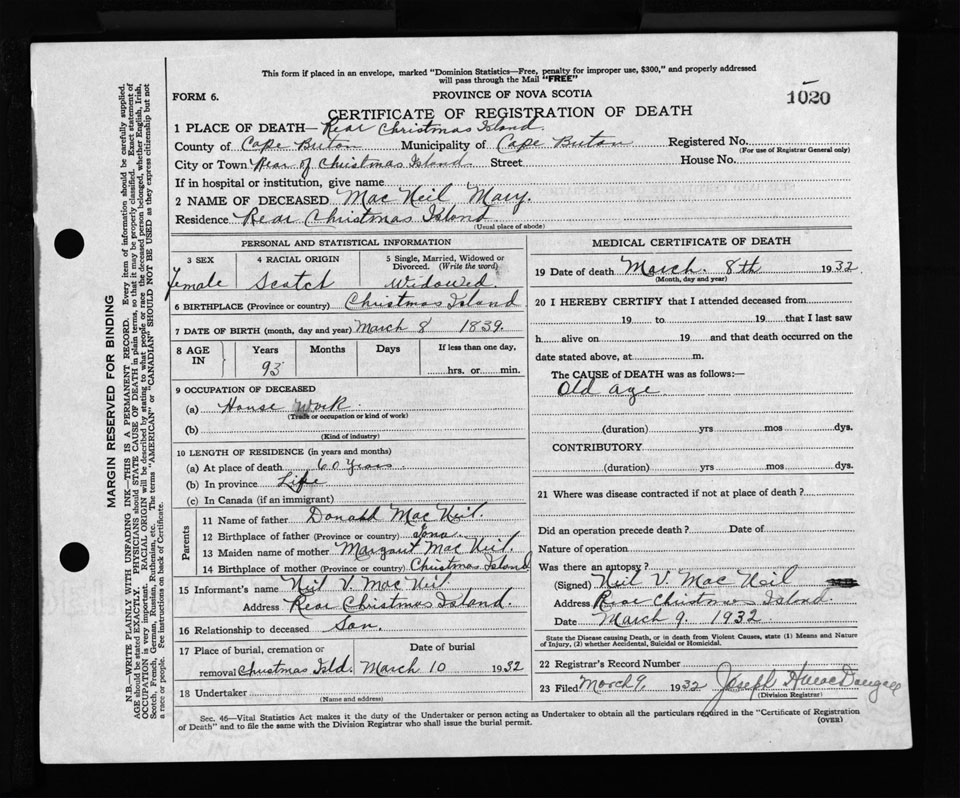 This form if placed in an envelope, marked "Dominion Statistics—Free, penalty for improper use, $300," and properly addressed
will pass through the Mail "FREE"
FORM 6.
PROVINCE OF NOVA SCOTIA
1020
CERTIFICATE OF REGISTRATION OF DEATH
1 PLACE OF DEATH— Rear Christmas Island
County of Cape Breton Municipality of Cape Breton Registered No.
(For use of Registrar General only)
City or Town Rear of Christmas Island Street House No.
If in hospital or institution, give name
2 NAME OF DECEASED Mac Neil Mary.
Residence Rear Christmas Island
(Usual place of abode)
MARGIN RESERVED FOR BINDING
N.B.—WRITE PLAINLY WITH UNFADING INK—THIS IS A PERMANENT RECORD. Every item of information should be carefully supplied.
AGE should be stated EXACTLY. PHYSICIANS should STATE CAUSE OF DEATH in plain terms, so that it may be properly classified. Exact statement of
OCCUPATION is very important. RACIAL ORIGIN will be described by stating to what people or race the deceased person belonged, whether English, Irish,
Scotch, French, German, Russian, Ruthenian, etc. The terms "AMERICAN" or "CANADIAN" SHOULD NOT BE USED as they express citizenship but not
a race or people. See instructions on back of Certificate.
PERSONAL AND STATISTICAL INFORMATION
3 SEX
Female
4 RACIAL ORIGIN
Scotch
5 Single, Married, Widowed or
Divorced. (Write the word)
Widowed
6 BIRTHPLACE (Province or country) Christmas Island
7 DATE OF BIRTH (month, day and year) March 8 1839.
8 AGE
IN
Years Months Days If less than one day,
93
hrs. or min.
9 OCCUPATION OF DECEASED
(a) House Work
(Trade or occupation or kind of work)
(b)
(Kind of industry)
10 LENGTH OF RESIDENCE (in years and months)
(a) At place of death 60 Years.
(b) In province Life
(c) In Canada (if an immigrant)
Parents
11 Name of father Donald Mac Neil.
12 Birthplace of father (Province or country) Iona
13 Maiden name of mother Margaret Mac Neil.
14 Birthplace of mother (Province or country) Christmas Island
15 Informant's name Neil V. Mac Neil.
Address Rear Christmas Island.
16 Relationship to deceased Son.
17 Place of burial, cremation or Date of burial
removal Christmas Isld. March 10 1932
18 Undertaker
(Name and address)
MEDICAL CERTIFICATE OF DEATH
19 Date of death March. 8th 1932
(Month, day and year)
20 I HEREBY CERTIFY that I attended deceased from
19 to 19 that I last saw
h alive on 19 and that death occurred on the
date stated above, at m.
The CAUSE of DEATH was as follows:—
Old age
(duration) yrs mos dys.
CONTRIBUTORY
(duration) yrs mos dys.
21 Where was disease contracted if not at place of death ?
Did an operation precede death ? Date of
Nature of operation
Was there an autopsy ?
(Signed) Neil V. Mac Neil
Address Rear Christmas Island.
Date March 9. 1932
State the Disease causing Death, or in death from Violent Causes, state (1) Means and Nature
of Injury, (2) whether Accidental, Suicidal or Homicidal.
22 Registrar's Record Number
23 Filed March 9, 1932 Joseph H MacDougall
(Division Registrar)
Sec. 46—Vital Statistics Act makes it the duty of the Undertaker or person acting as Undertaker to obtain all the particulars required in the "Certificate of Registration
of Death" and to file the same with the Division Registrar who shall issue the burial permit.
(OVER)